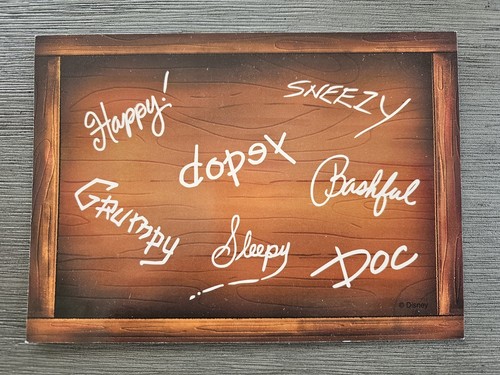 Happy!
SNEEZY
dopex
Bashful
GRUMPY
Sleepy
DOC
© Disney